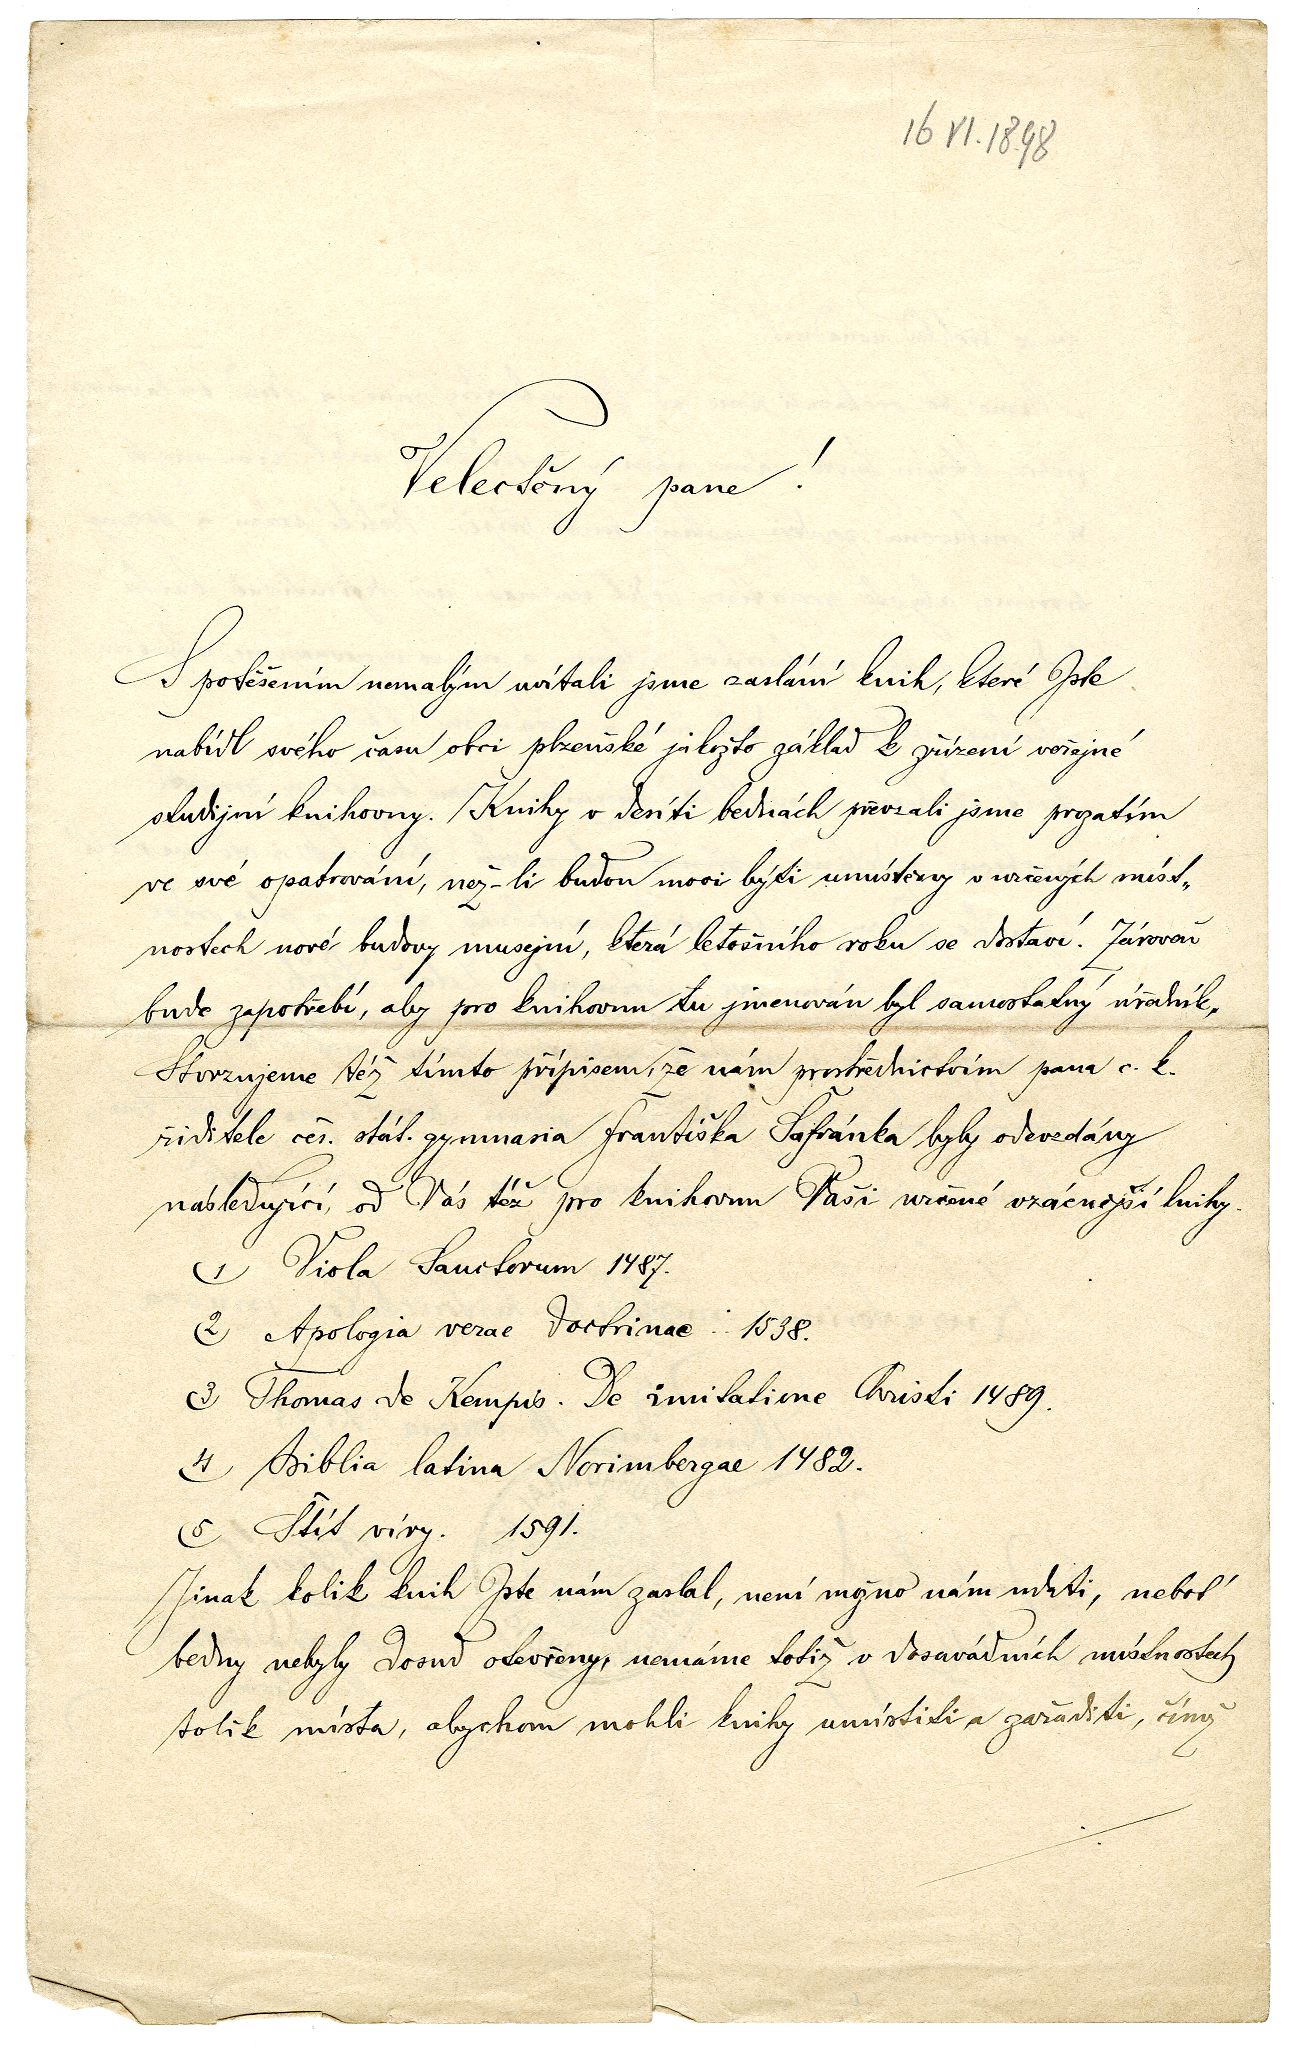 16 VI. 1898
Velectěný pane!
S potěšením nemalým uvítali jsme zaslání knih, které Jste
nabídl svého času obci plzeňské jakožto základ k zřízení veřejné
studijní knihovny. Knihy v desíti bednách převzali jsme prozatím
ve své opatrování, než-li budou moci býti umístěny v určených míst„
nostech nové budovy musejní, která letošního roku se dostaví. Zároveň
bude zapotřebí, aby pro knihovnu tu jmenován byl samostatný úředník„
Stvrzujeme též tímto přípisem, že nám prostřednictvím pana c. k.
ředitele čes. stát. gymnasia Františka Šafránka byly odevzdány
následující, od Vás též pro knihovnu Vaši určené vzácnější knihy.
1) Viola Sanctorum 1487.
2) Apologia verae doctrinae .. 1538.
3) Thomas de Kempis. De imitatione Christi 1489.
4) Biblia latina Norimbergae 1482.
5) Štít víry. 1591.
Jinak kolik knih Jste nám zaslal, není možno nám udati, neboť
bedny nebyly dosud otevřeny, nemáme totiž v dosavádních místnostech
tolik místa, abychom mohli knihy umístiti a zařaditi, čímž